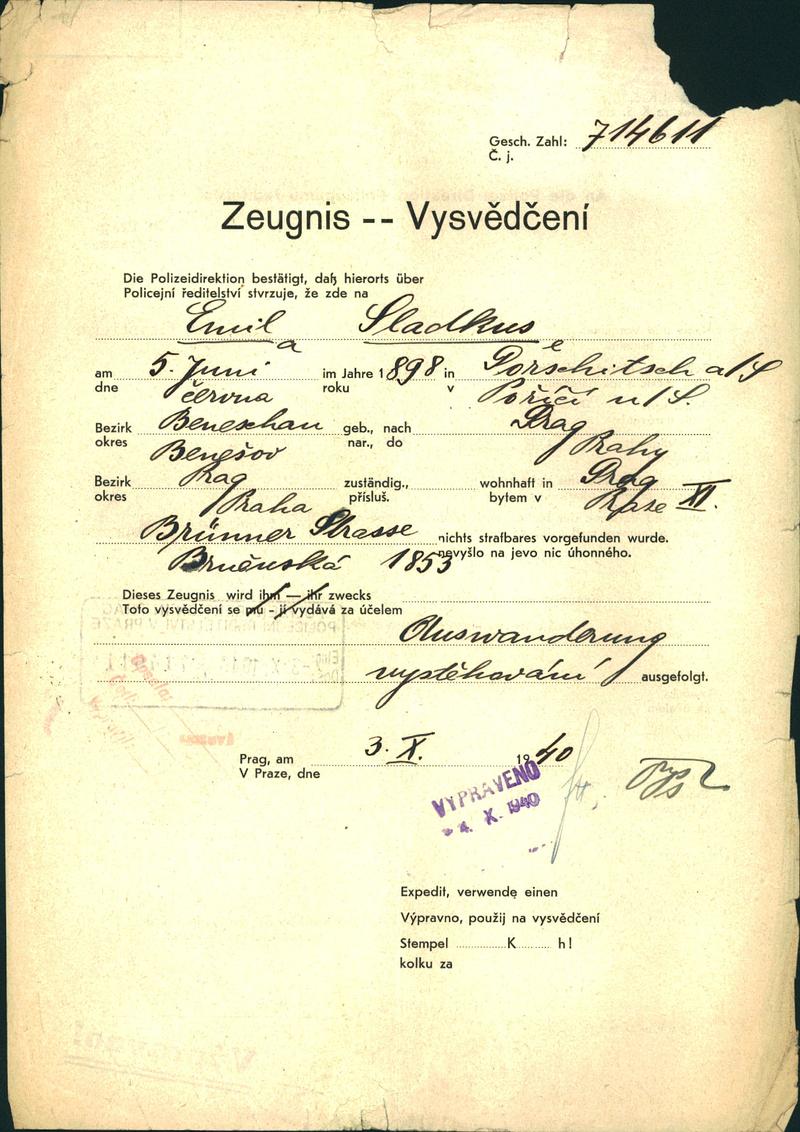 Gesch. Zahl: 714611
Č. j.
Zeugnis -- Vysvědčení
Die Polizeidirektion bestätigt, daß hierorts über
Policejní ředitelství stvrzuje, že zde na
Emil Sladkus
a e
am 5. Juni im Jahre 1898 in Porschitsch a/S
dne června roku v Poříčí n/S.
Bezirk Beneschau geb., nach Prag
okres Benešov nar., do Prahy
Bezirk Prag zuständig., wohnhaft in Prag
okres Praha přísluš. bytem v Praze XI.
Brünner Strasse nichts strafbares vorgefunden wurde.
Brněnská 1853 nevyšlo na jevo nic úhonného.
Dieses Zeugnis wird ihm — ihr zwecks
Toto vysvědčení se mu - jí vydává za účelem
Auswanderung
vystěhování ausgefolgt.
Prag, am 3. X. 1940
V Praze, dne
VYPRAVENO
4. X. 1940
Expedit, verwende einen
Výpravno, použij na vysvědčení
Stempel K h!
kolku za